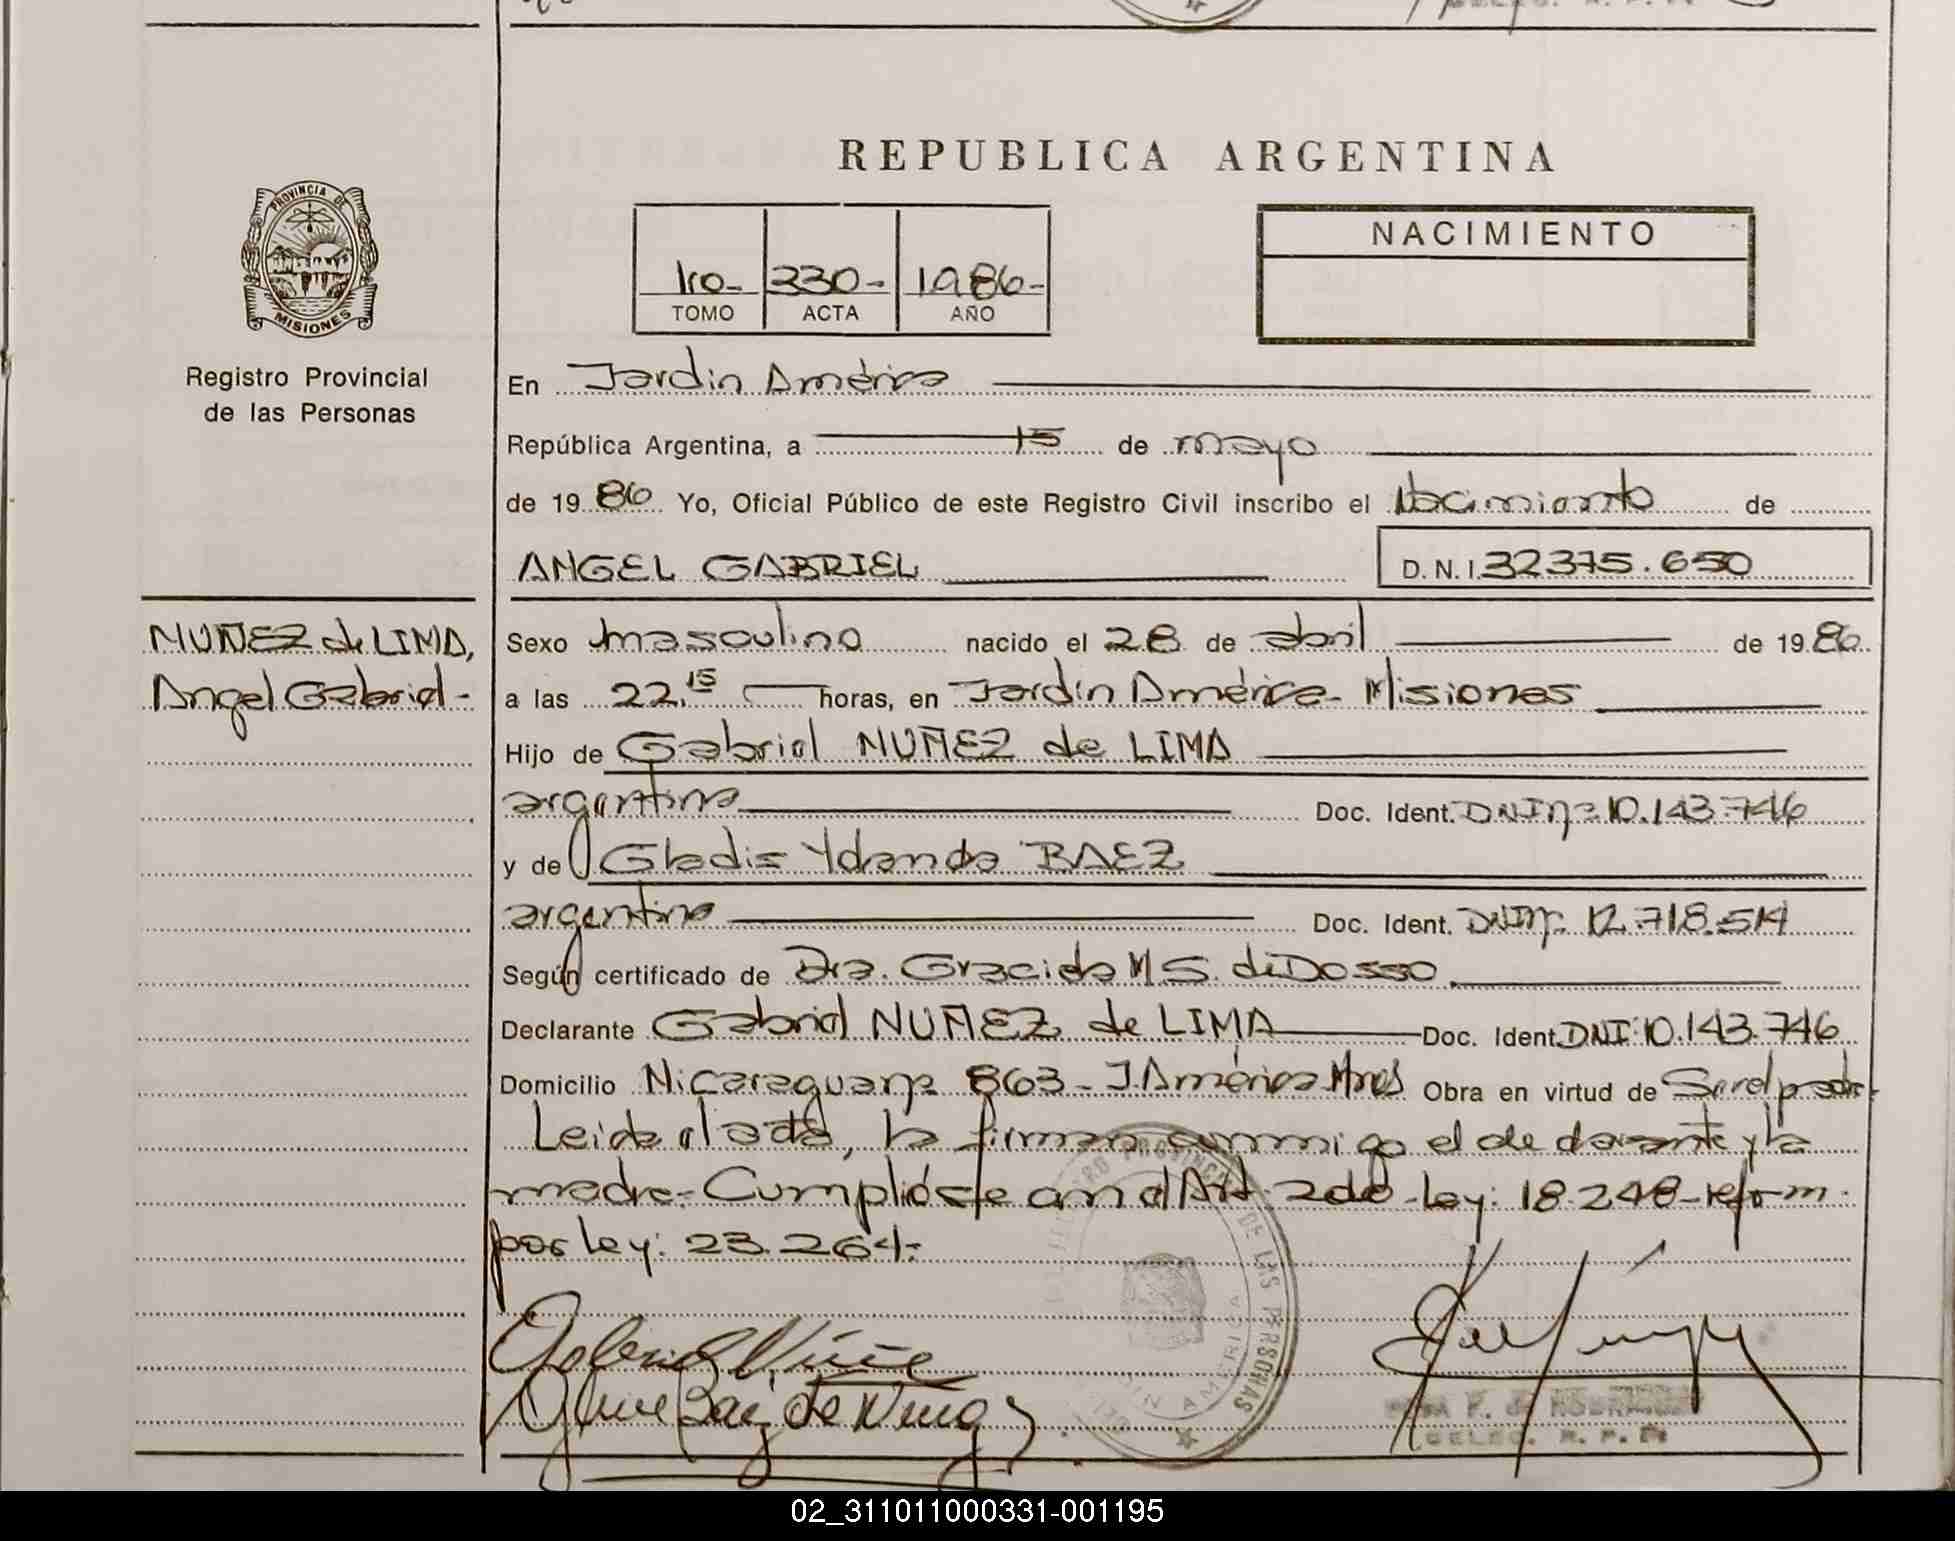 REPUBLICA ARGENTINA
PROVINCIA DE
MISIONES
Registro Provincial
de las Personas
1ro- 330- 1986-
TOMO ACTA AÑO
NACIMIENTO
En Jardín América
República Argentina, a 15 de mayo
de 1986 Yo, Oficial Público de este Registro Civil inscribo el Nacimiento de
ANGEL GABRIEL D.N.I. 32375.650
NUÑEZ de LIMA,
Angel Gabriel-
Sexo masculino nacido el 28 de abril de 1986
a las 22.15 horas, en Jardín América- Misiones
Hijo de Gabriel NUÑEZ de LIMA
argentino Doc. Ident. DNI nº 10.143.746
y de Gladis Yolanda BAEZ
argentina Doc. Ident. DNI nº 12.718.514
Según certificado de Dra. Graciela M S. de Dosso
Declarante Gabriel NUÑEZ de LIMA Doc. Ident. DNI: 10.143.746
Domicilio Nicaragua nº 863- J. América Mnes Obra en virtud de
Leida el acta, la firman conmigo el declarante y la
madre.- Cumplióse con el Art. 2do- Ley: 18.248- reform.
por ley: 23.264.-
DE LAS PERSONAS
02_311011000331-001195